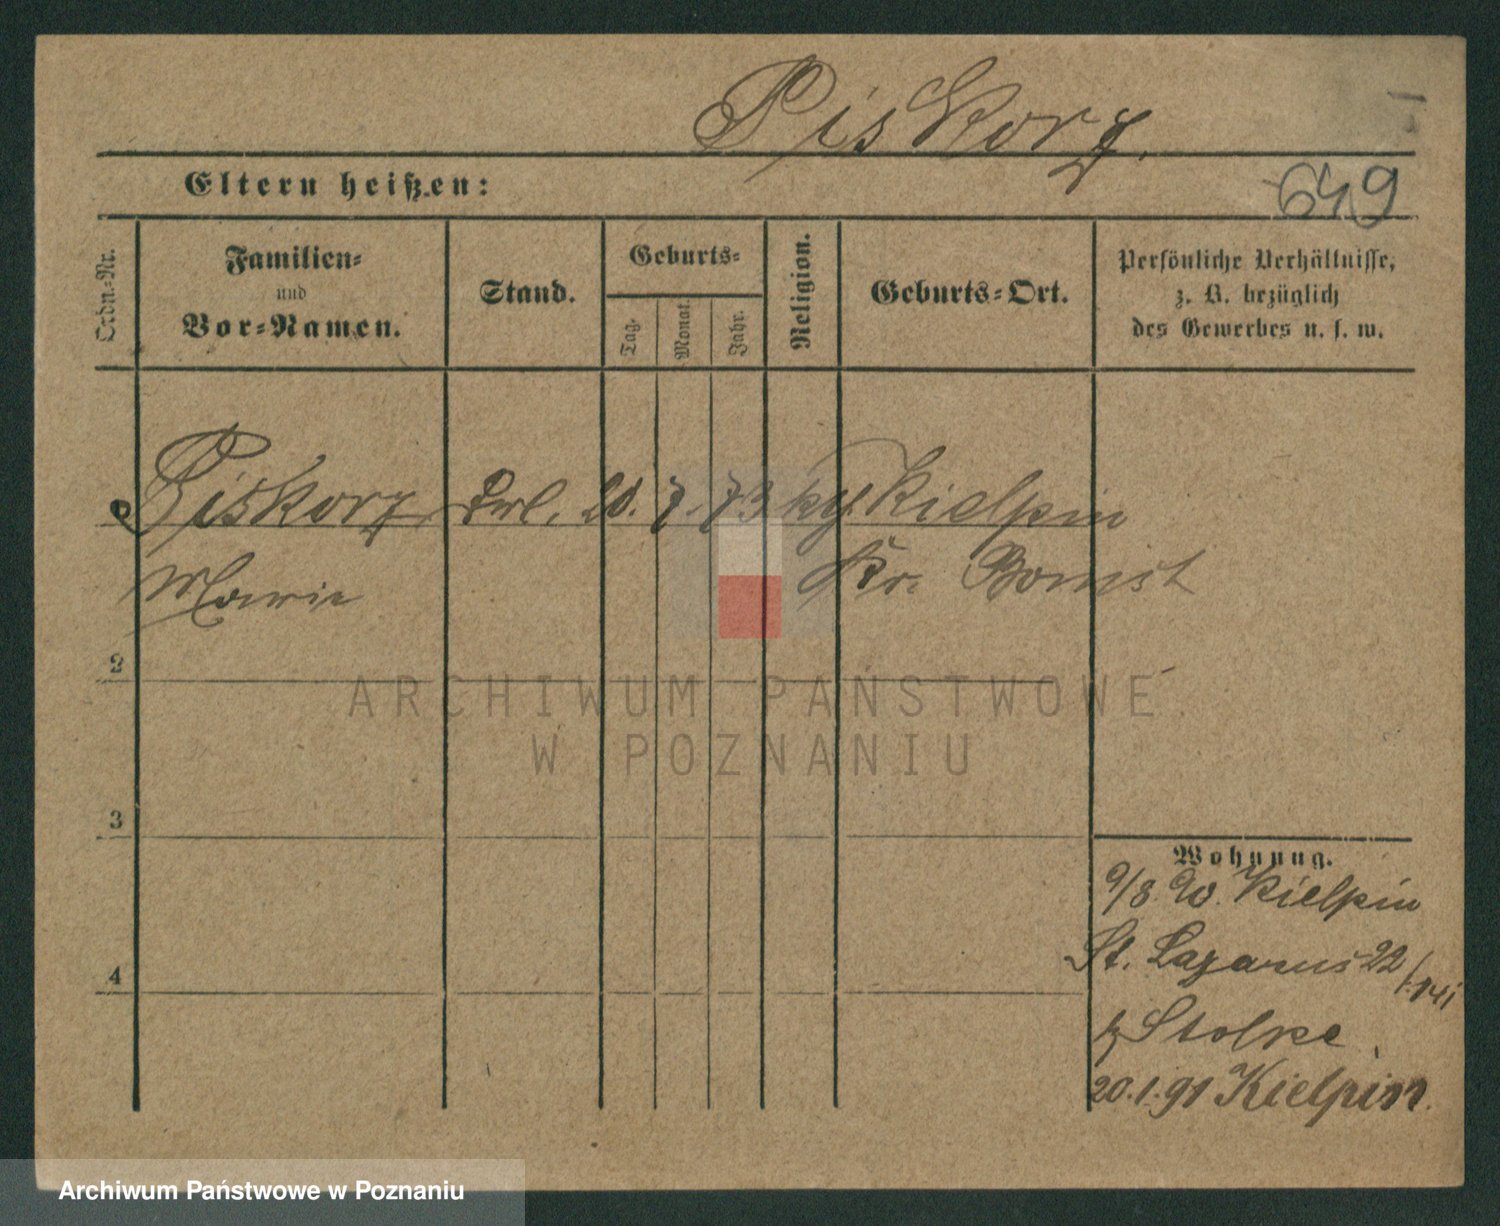 Piskorz.
Eltern heißen:
649
Ordn.-Nr.
Familien-
und
Vor-Namen.
Stand.
Geburts-
Tag.
Monat.
Jahr.
Religion.
Geburts-Ort.
Persönliche Verhältnisse,
z. B. bezüglich
des Gewerbes u. s. w.
Piskorz 20. 7. 73 Kielpin
Marie Kr. Bomst
2
3
4
ARCHIWUM PAŃSTWOWE
W POZNANIU
Wohnung.
9/8 90. Kielpin
St. Lazarus 22
20.1.91 Kielpin.
Archiwum Państwowe w Poznaniu